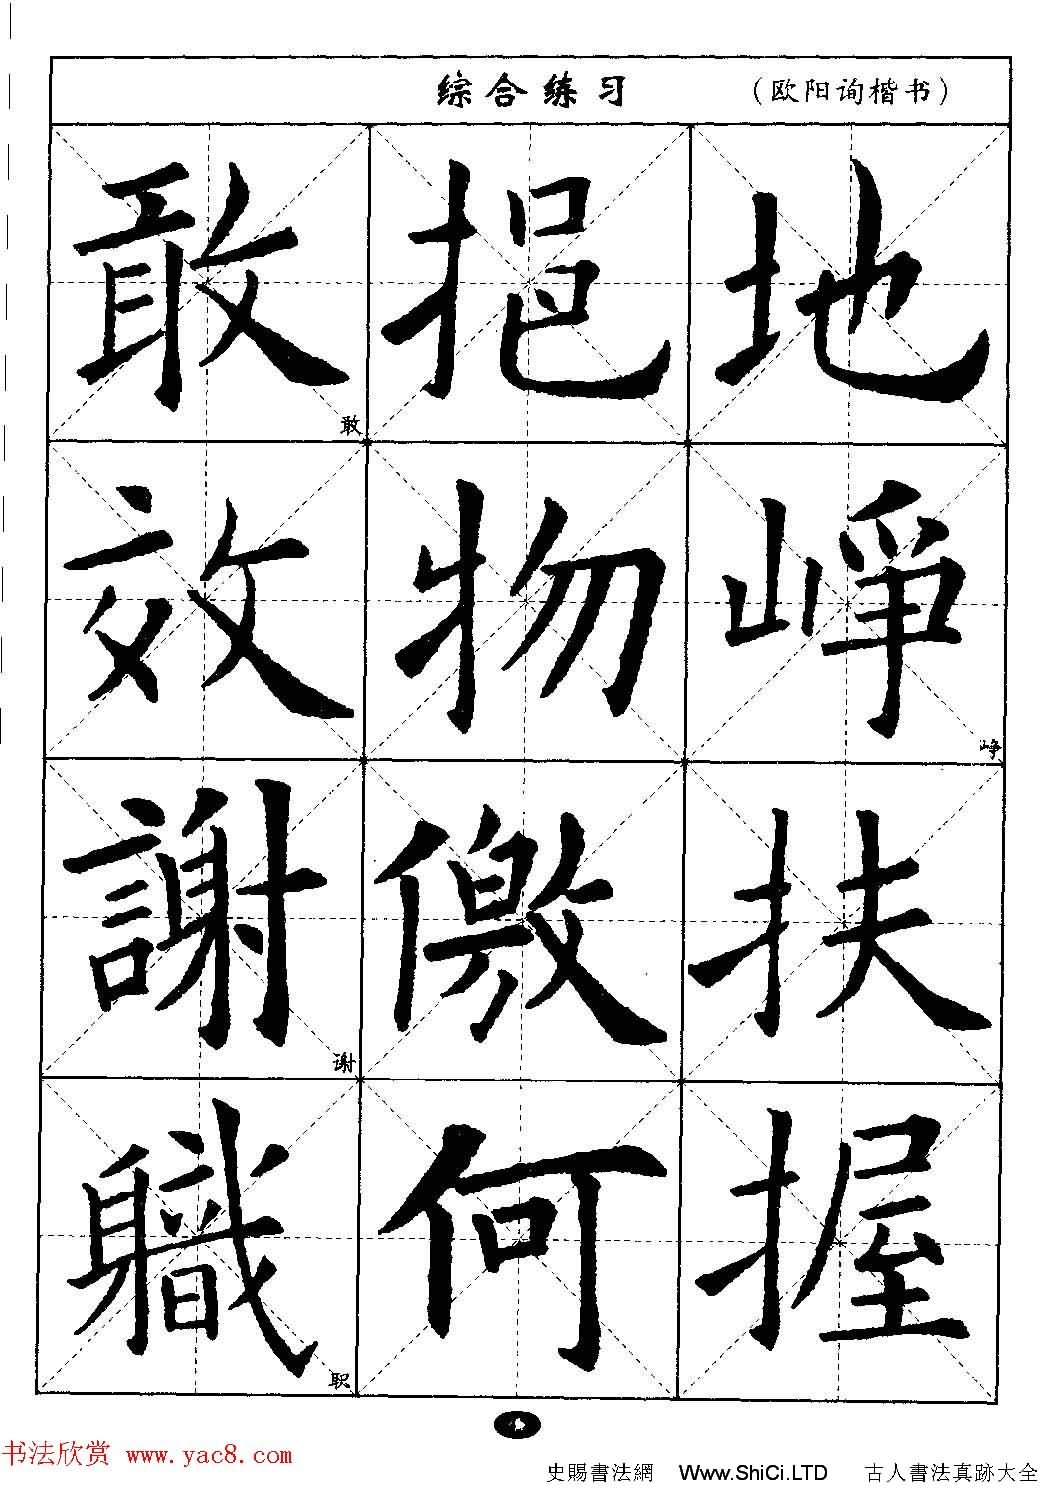 综合练习 (欧阳询楷书)
敢 挹 地
敢
效 物 峥
峥
謝 儌 扶
谢
職 何 握
职
书法欣赏 www.yac8.com
史賜書法網 Www.ShiCi.LTD 古人書法真跡大全